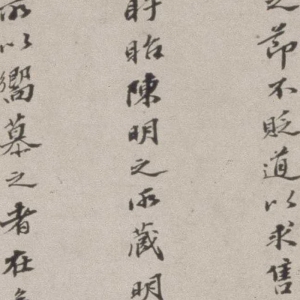 之節不貶道以求售
盱眙陳明之所藏明
所以嚮慕之者在